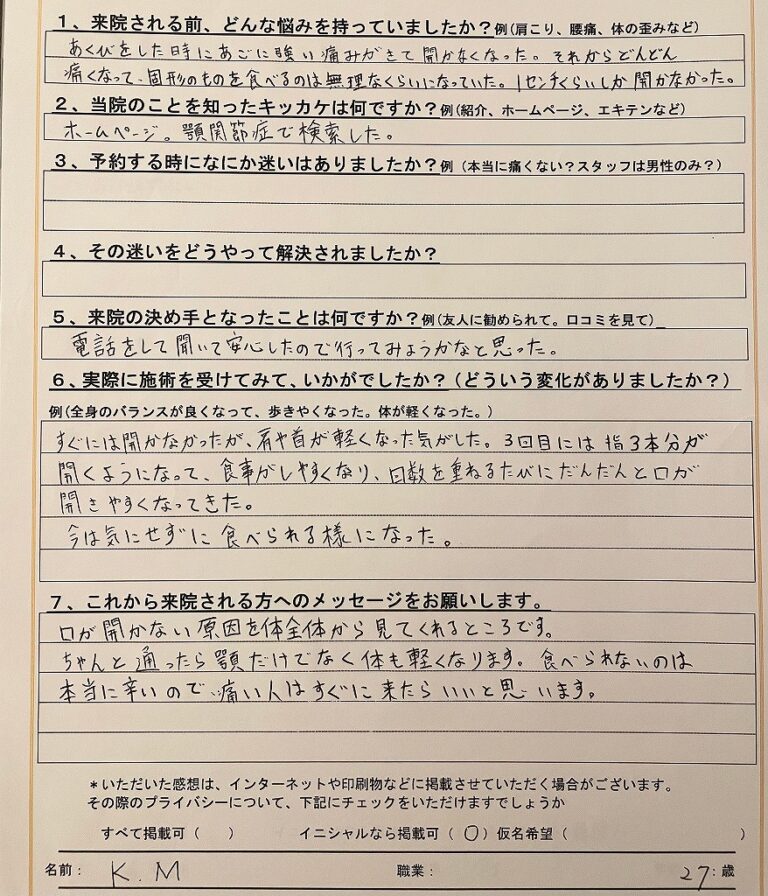 1、来院される前、どんな悩みを持っていましたか？例(肩こり、腰痛、体の歪みなど)
あくびをした時にあごに強い痛みがきて開かなくなった。それからどんどん
痛くなって、固形のものを食べるのは無理なくらいになっていた。1センチくらいしか開かなかった。
2、当院のことを知ったキッカケは何ですか？例(紹介、ホームページ、エキテンなど)
ホームページ。顎関節症で検索した。
3、予約する時になにか迷いはありましたか？例（本当に痛くない？スタッフは男性のみ？）
4、その迷いをどうやって解決されましたか？
5、来院の決め手となったことは何ですか？例(友人に勧められて。口コミを見て)
電話をして聞いて安心したので行ってみようかなと思った。
6、実際に施術を受けてみて、いかがでしたか？（どういう変化がありましたか？）
例(全身のバランスが良くなって、歩きやくなった。体が軽くなった。)
すぐには開かなかったが、肩や首が軽くなった気がした。3回目には指3本分が
開くようになって、食事がしやすくなり、日数を重ねるたびにだんだんと口が
開きやすくなってきた。
今は気にせずに食べられる様になった。
7、これから来院される方へのメッセージをお願いします。
口が開かない原因を体全体から見てくれるところです。
ちゃんと通ったら顎だけでなく体も軽くなります。食べられないのは
本当に辛いので、痛い人はすぐに来たらいいと思います。
＊いただいた感想は、インターネットや印刷物などに掲載させていただく場合がございます。
その際のプライバシーについて、下記にチェックをいただけますでしょうか
すべて掲載可（　　）　イニシャルなら掲載可（○）仮名希望（　　）
名前：K.M　職業：　27：歳